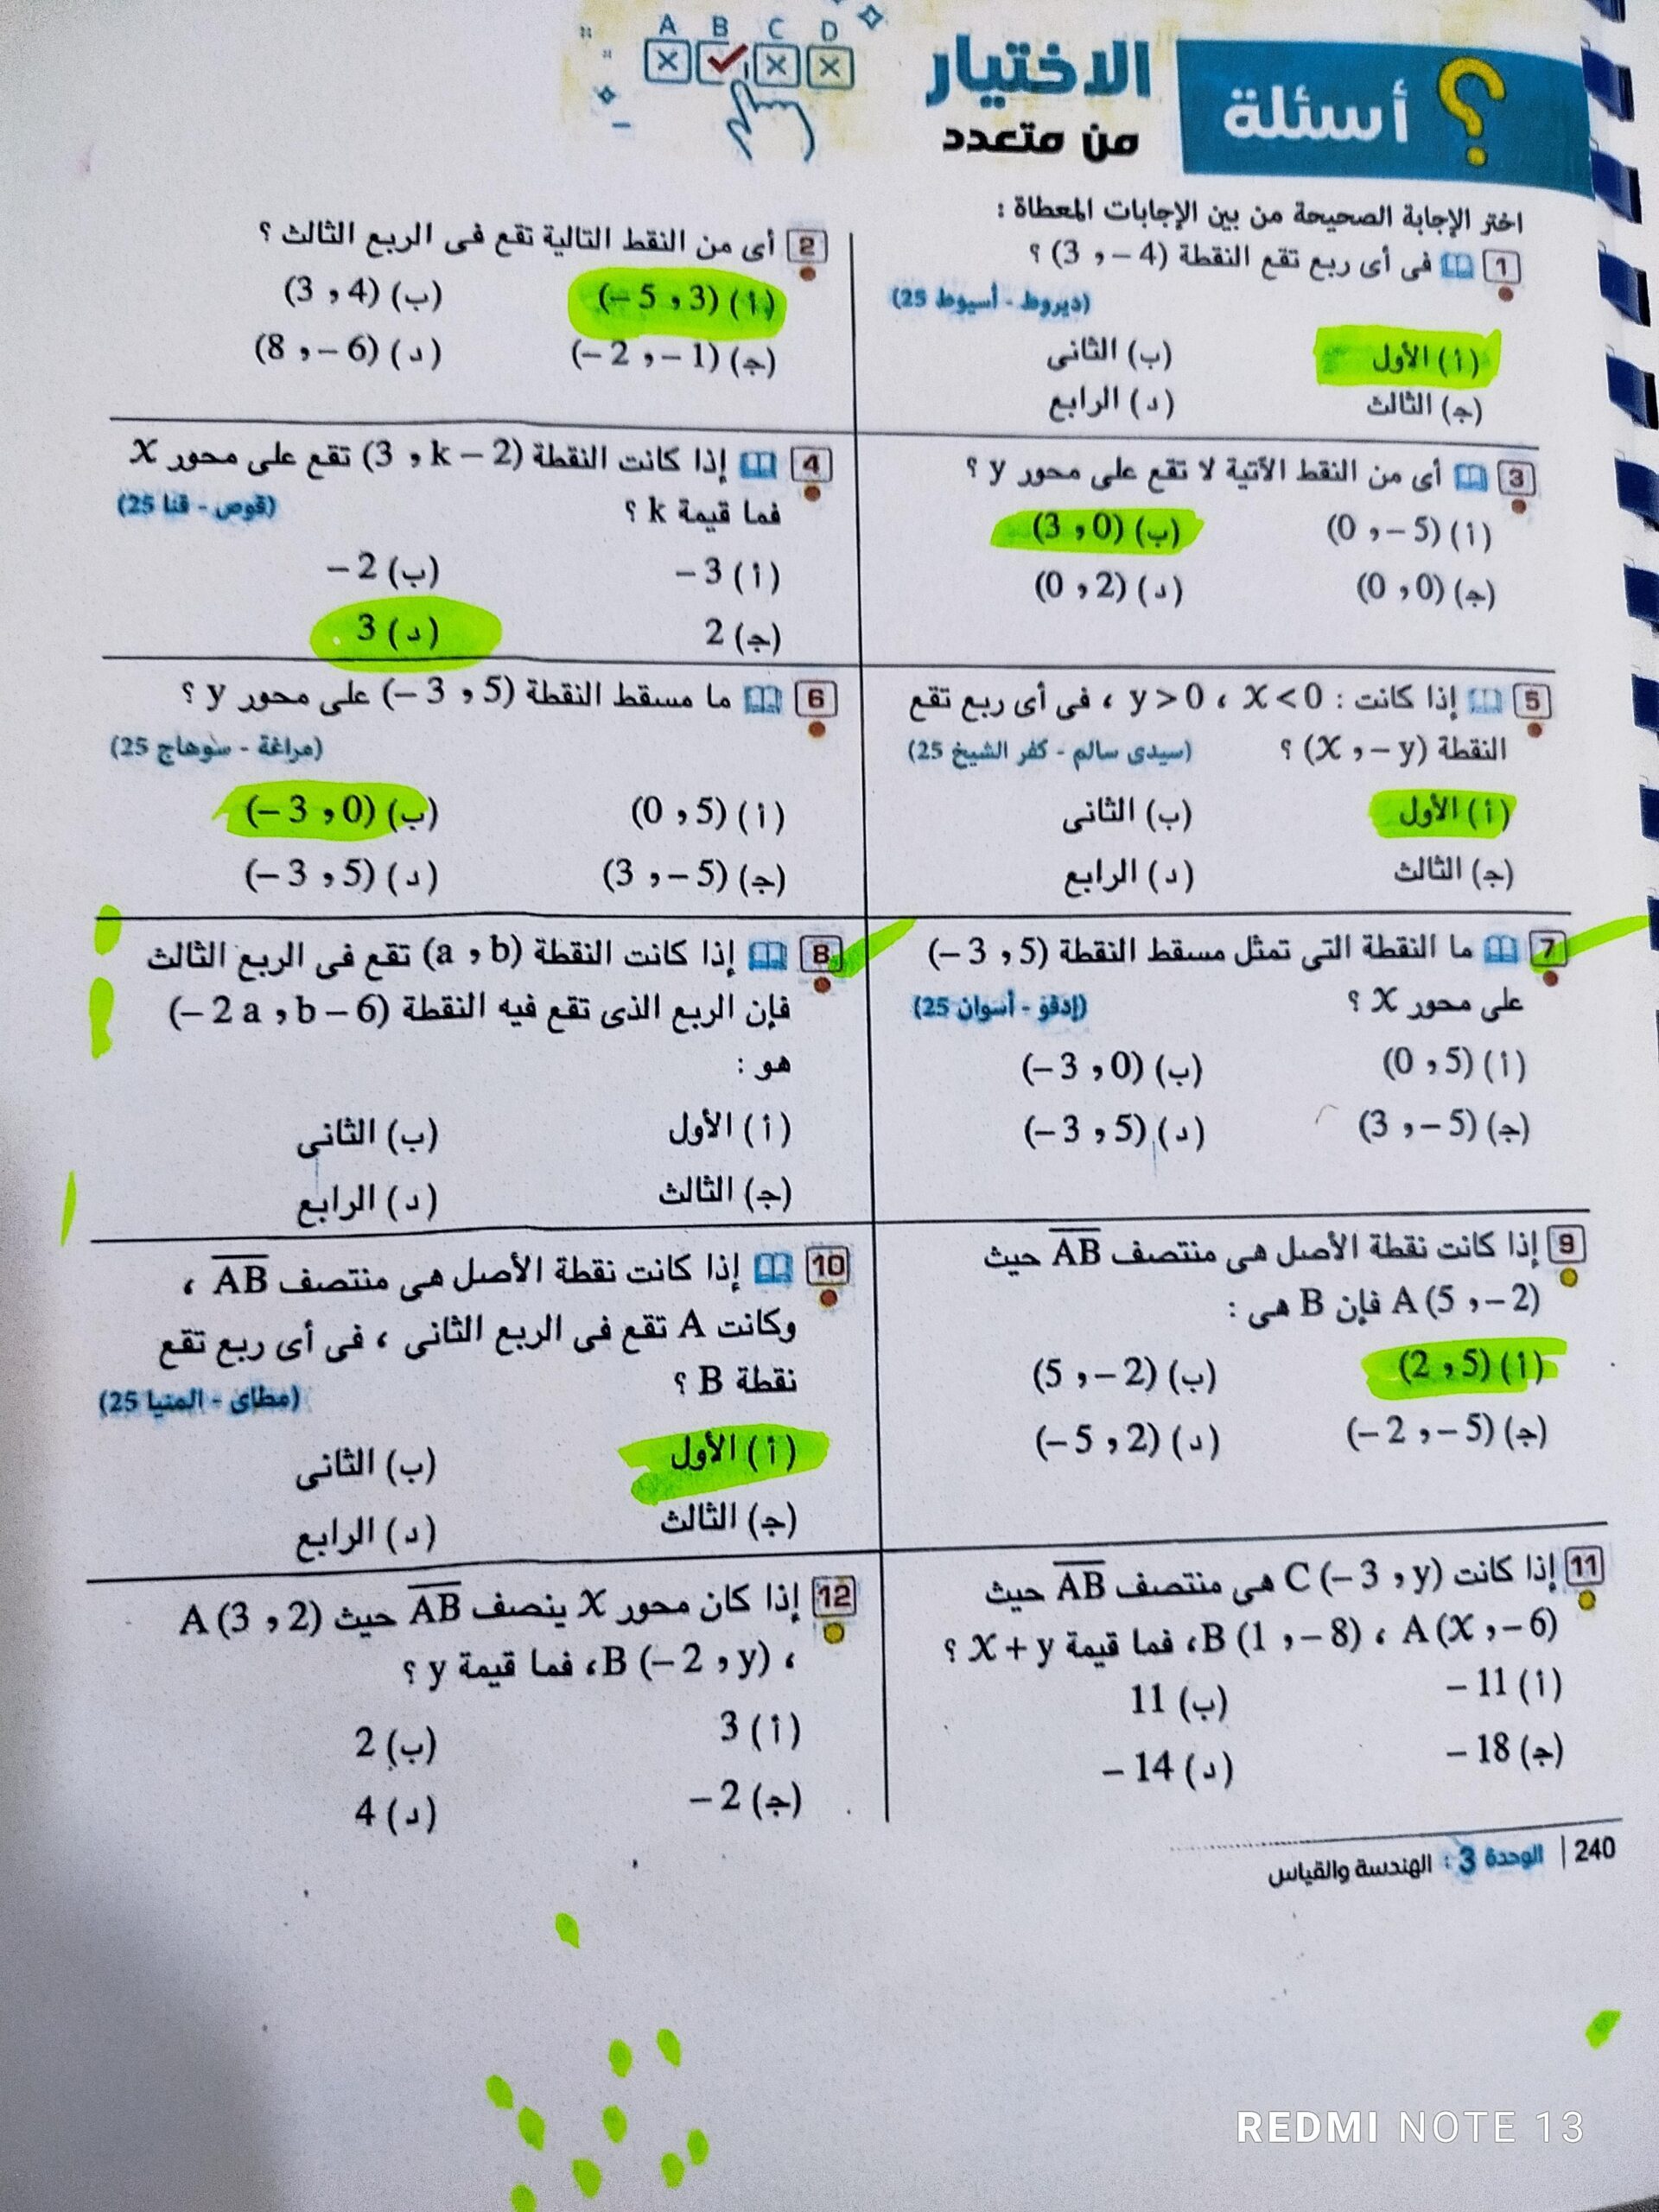 A B C D
أسئلة
الاختيار
من متعدد
اختر الإجابة الصحيحة من بين الإجابات المعطاة :
1 فى أى ربع تقع النقطة (3 ، – 4) ؟
(ديروط - أسيوط 25)
(أ) الأول (ب) الثانى
(ج) الثالث (د) الرابع
2 أى من النقط التالية تقع فى الربع الثالث ؟
(أ) (– 5 ، 3) (ب) (3 ، 4)
(ج) (– 2 ، – 1) (د) (8 ، – 6)
3 أى من النقط الآتية لا تقع على محور y ؟
(أ) (0 ، – 5) (ب) (3 ، 0)
(ج) (0 ، 0) (د) (0 ، 2)
4 إذا كانت النقطة (3 ، k – 2) تقع على محور X
فما قيمة k ؟ (قوص - قنا 25)
(أ) – 3 (ب) – 2
(ج) 2 (د) 3
5 إذا كانت : X < 0 ، y > 0 ، فى أى ربع تقع
النقطة (X ، – y) ؟ (سيدى سالم - كفر الشيخ 25)
(أ) الأول (ب) الثانى
(ج) الثالث (د) الرابع
6 ما مسقط النقطة (– 3 ، 5) على محور y ؟
(مراغة - سوهاج 25)
(أ) (0 ، 5) (ب) (– 3 ، 0)
(ج) (3 ، – 5) (د) (– 3 ، 5)
7 ما النقطة التى تمثل مسقط النقطة (– 3 ، 5)
على محور X ؟ (إدفو - أسوان 25)
(أ) (0 ، 5) (ب) (– 3 ، 0)
(ج) (3 ، – 5) (د) (– 3 ، 5)
8 إذا كانت النقطة (a ، b) تقع فى الربع الثالث
فإن الربع الذى تقع فيه النقطة (– 2 a ، b – 6)
هو :
(أ) الأول (ب) الثانى
(ج) الثالث (د) الرابع
9 إذا كانت نقطة الأصل هى منتصف AB حيث
A (5 ، – 2) فإن B هى :
(أ) (2 ، 5) (ب) (5 ، – 2)
(ج) (– 2 ، – 5) (د) (– 5 ، 2)
10 إذا كانت نقطة الأصل هى منتصف AB ،
وكانت A تقع فى الربع الثانى ، فى أى ربع تقع
نقطة B ؟ (مطاى - المنيا 25)
(أ) الأول (ب) الثانى
(ج) الثالث (د) الرابع
11 إذا كانت C (– 3 ، y) هى منتصف AB حيث
A (X ، – 6) ، B (1 ، – 8) ، فما قيمة X + y ؟
(أ) – 11 (ب) 11
(ج) – 18 (د) – 14
12 إذا كان محور X ينصف AB حيث A (3 ، 2)
، B (– 2 ، y) ، فما قيمة y ؟
(أ) 3 (ب) 2
(ج) – 2 (د) 4
240 | الوحدة 3 : الهندسة والقياس
REDMI NOTE 13